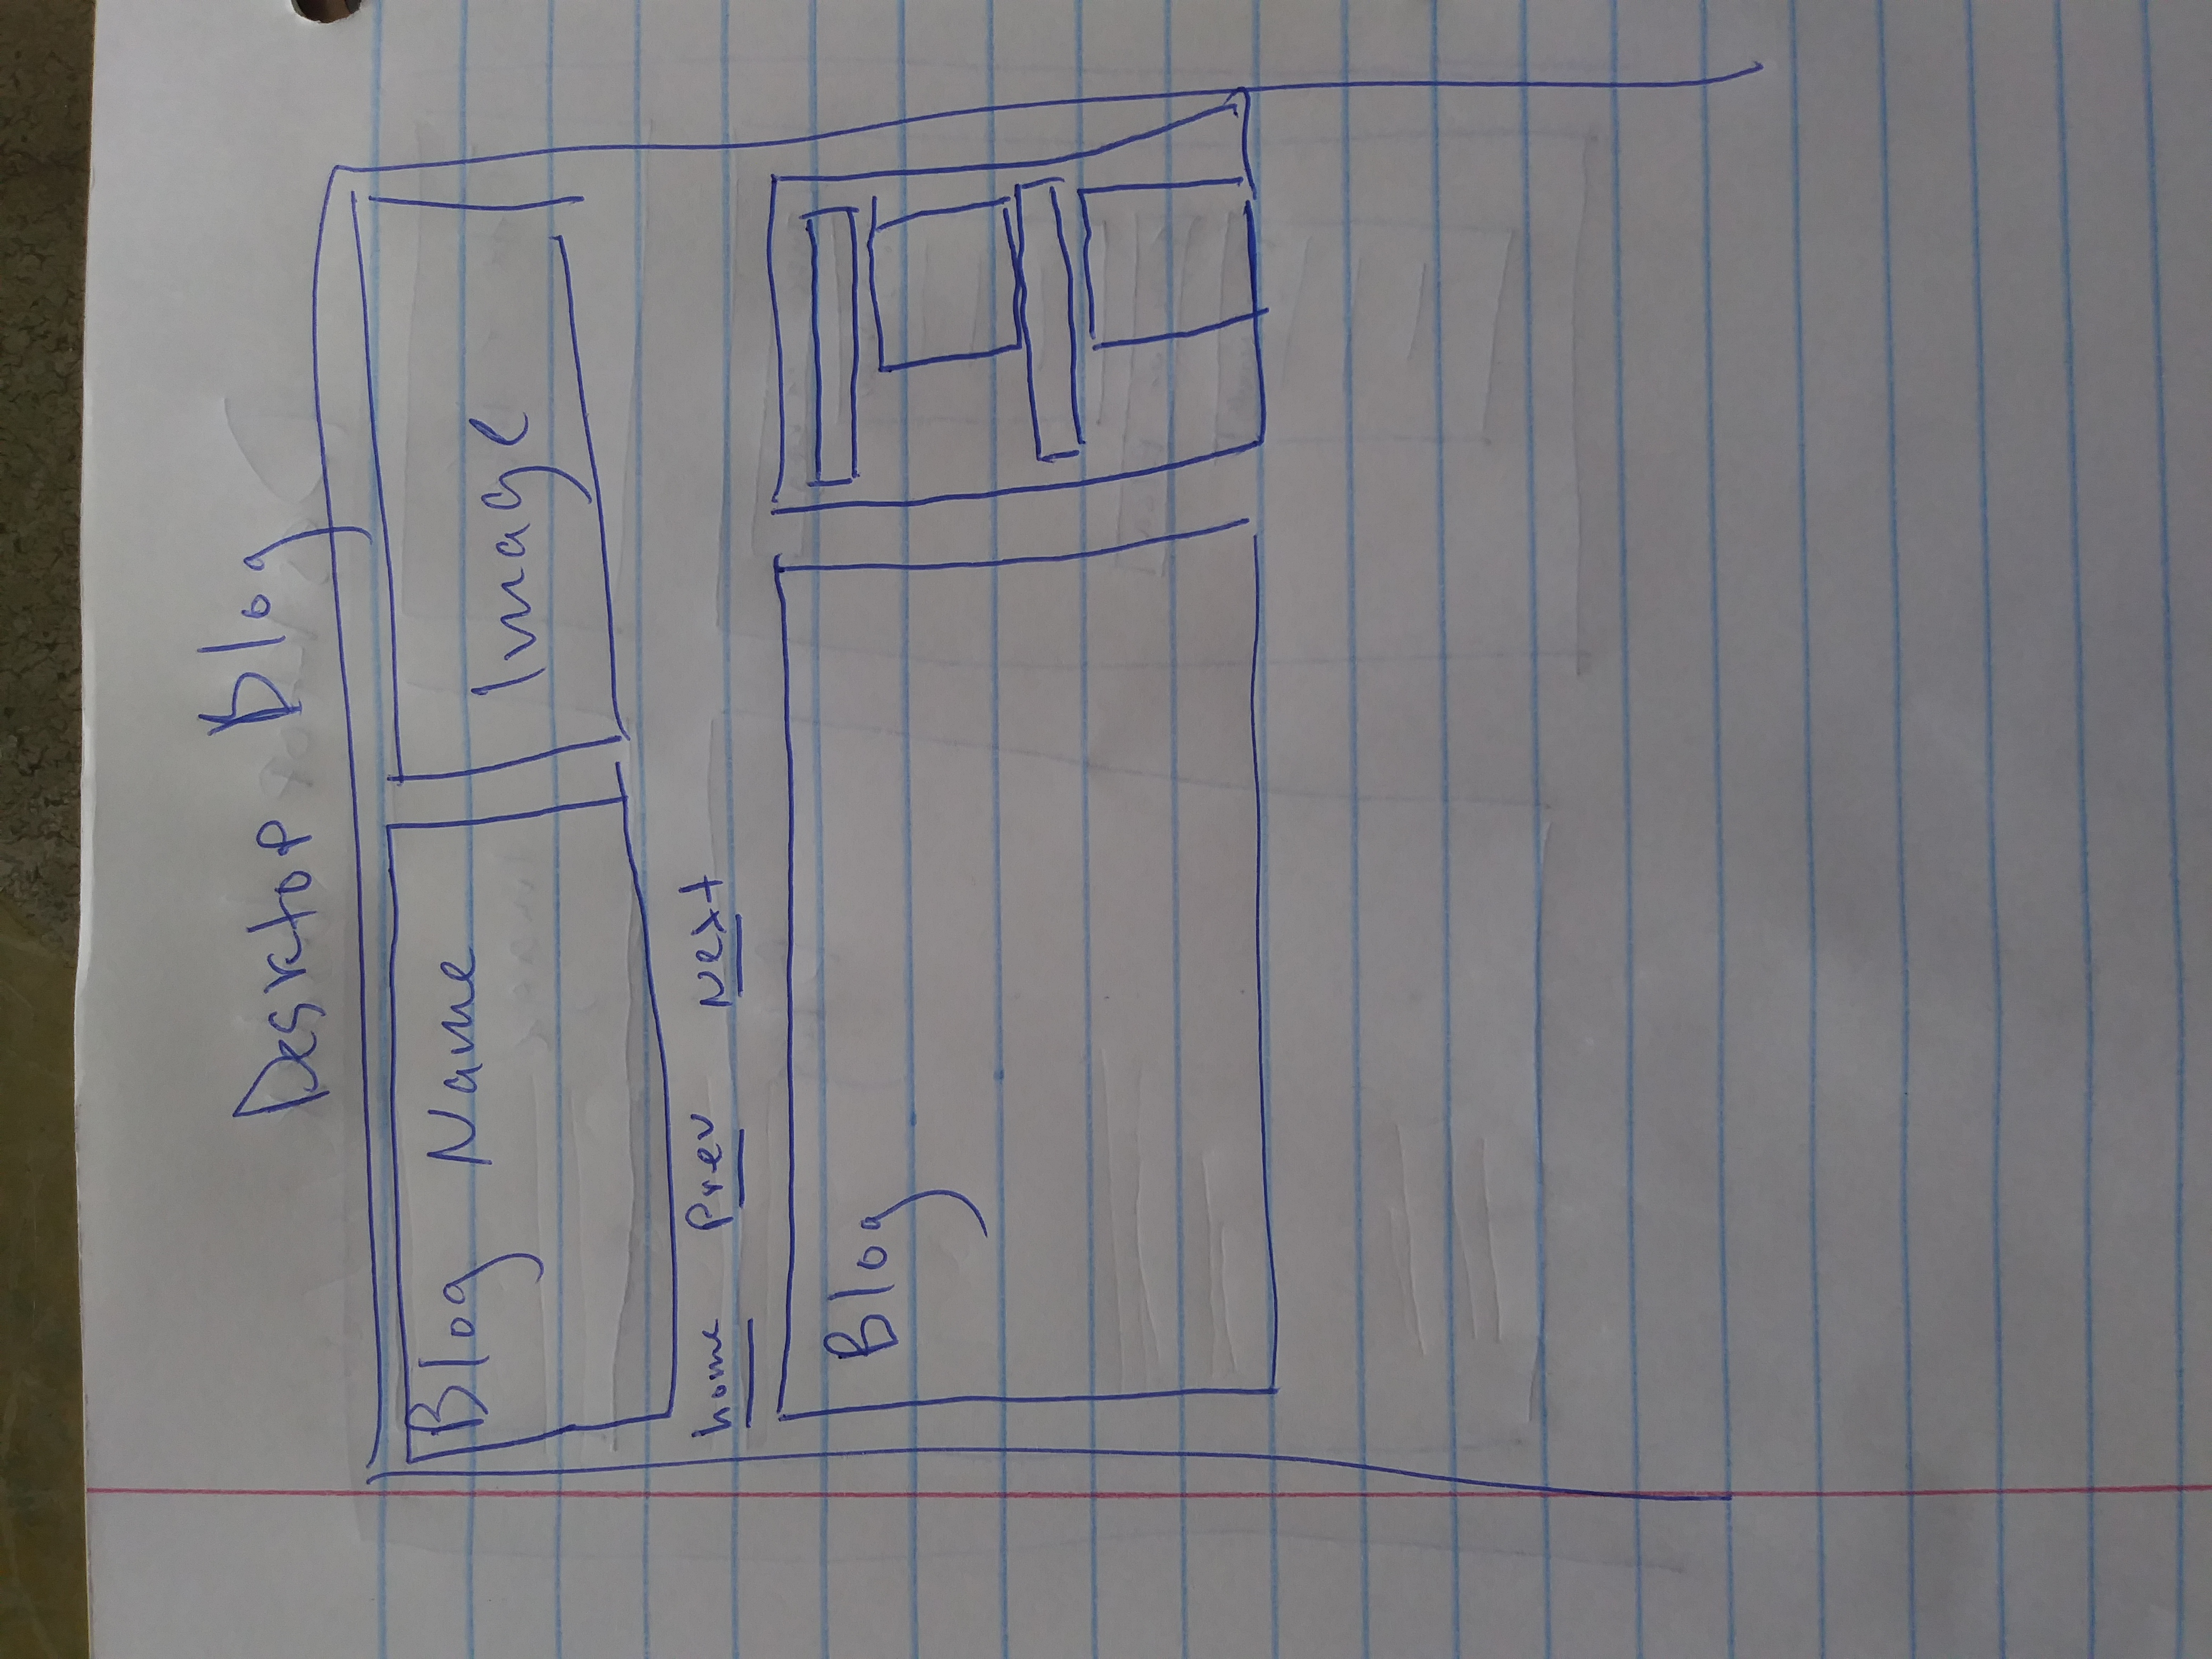 Desktop Blog
Blog Name
Image
home Prev Next
Blog